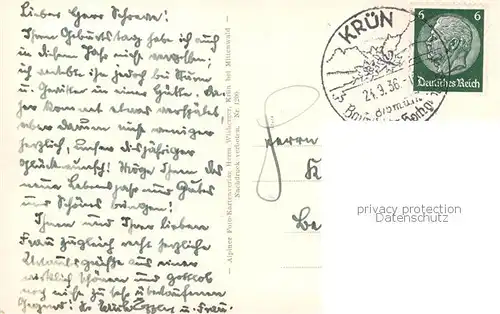 Lieber Herr Schramm!
Ihren Geburtstag habe ich auch
in diesem Jahr nicht vergessen;
ich verlebte ihn jedoch bei Sturm
und Gewitter in einer Hütte. Da-
her kommt etwas verspätet,
aber darum nicht weniger
herzlich, unser diesjähriger
Glückwunsch! Möge Ihnen das
neue Lebensjahr nur Gutes
und Schönes bringen!
Ihnen und Ihrer lieben
Frau zugleich recht herzliche
Urlaubsgrüße aus einer
wirklich schönen und gottlob
noch nicht zu sehr überlaufenen
Gegend! Ihr u. Frau.
— Alpiner Foto-Kartenverlag, Herm. Wühlerger, Krün bei Mittenwald —
Nachdruck verboten. Nr. 1286
KRÜN
24.9.36
6 6
Deutsches Reich
Herrn
K
Be
privacy protection
Datenschutz